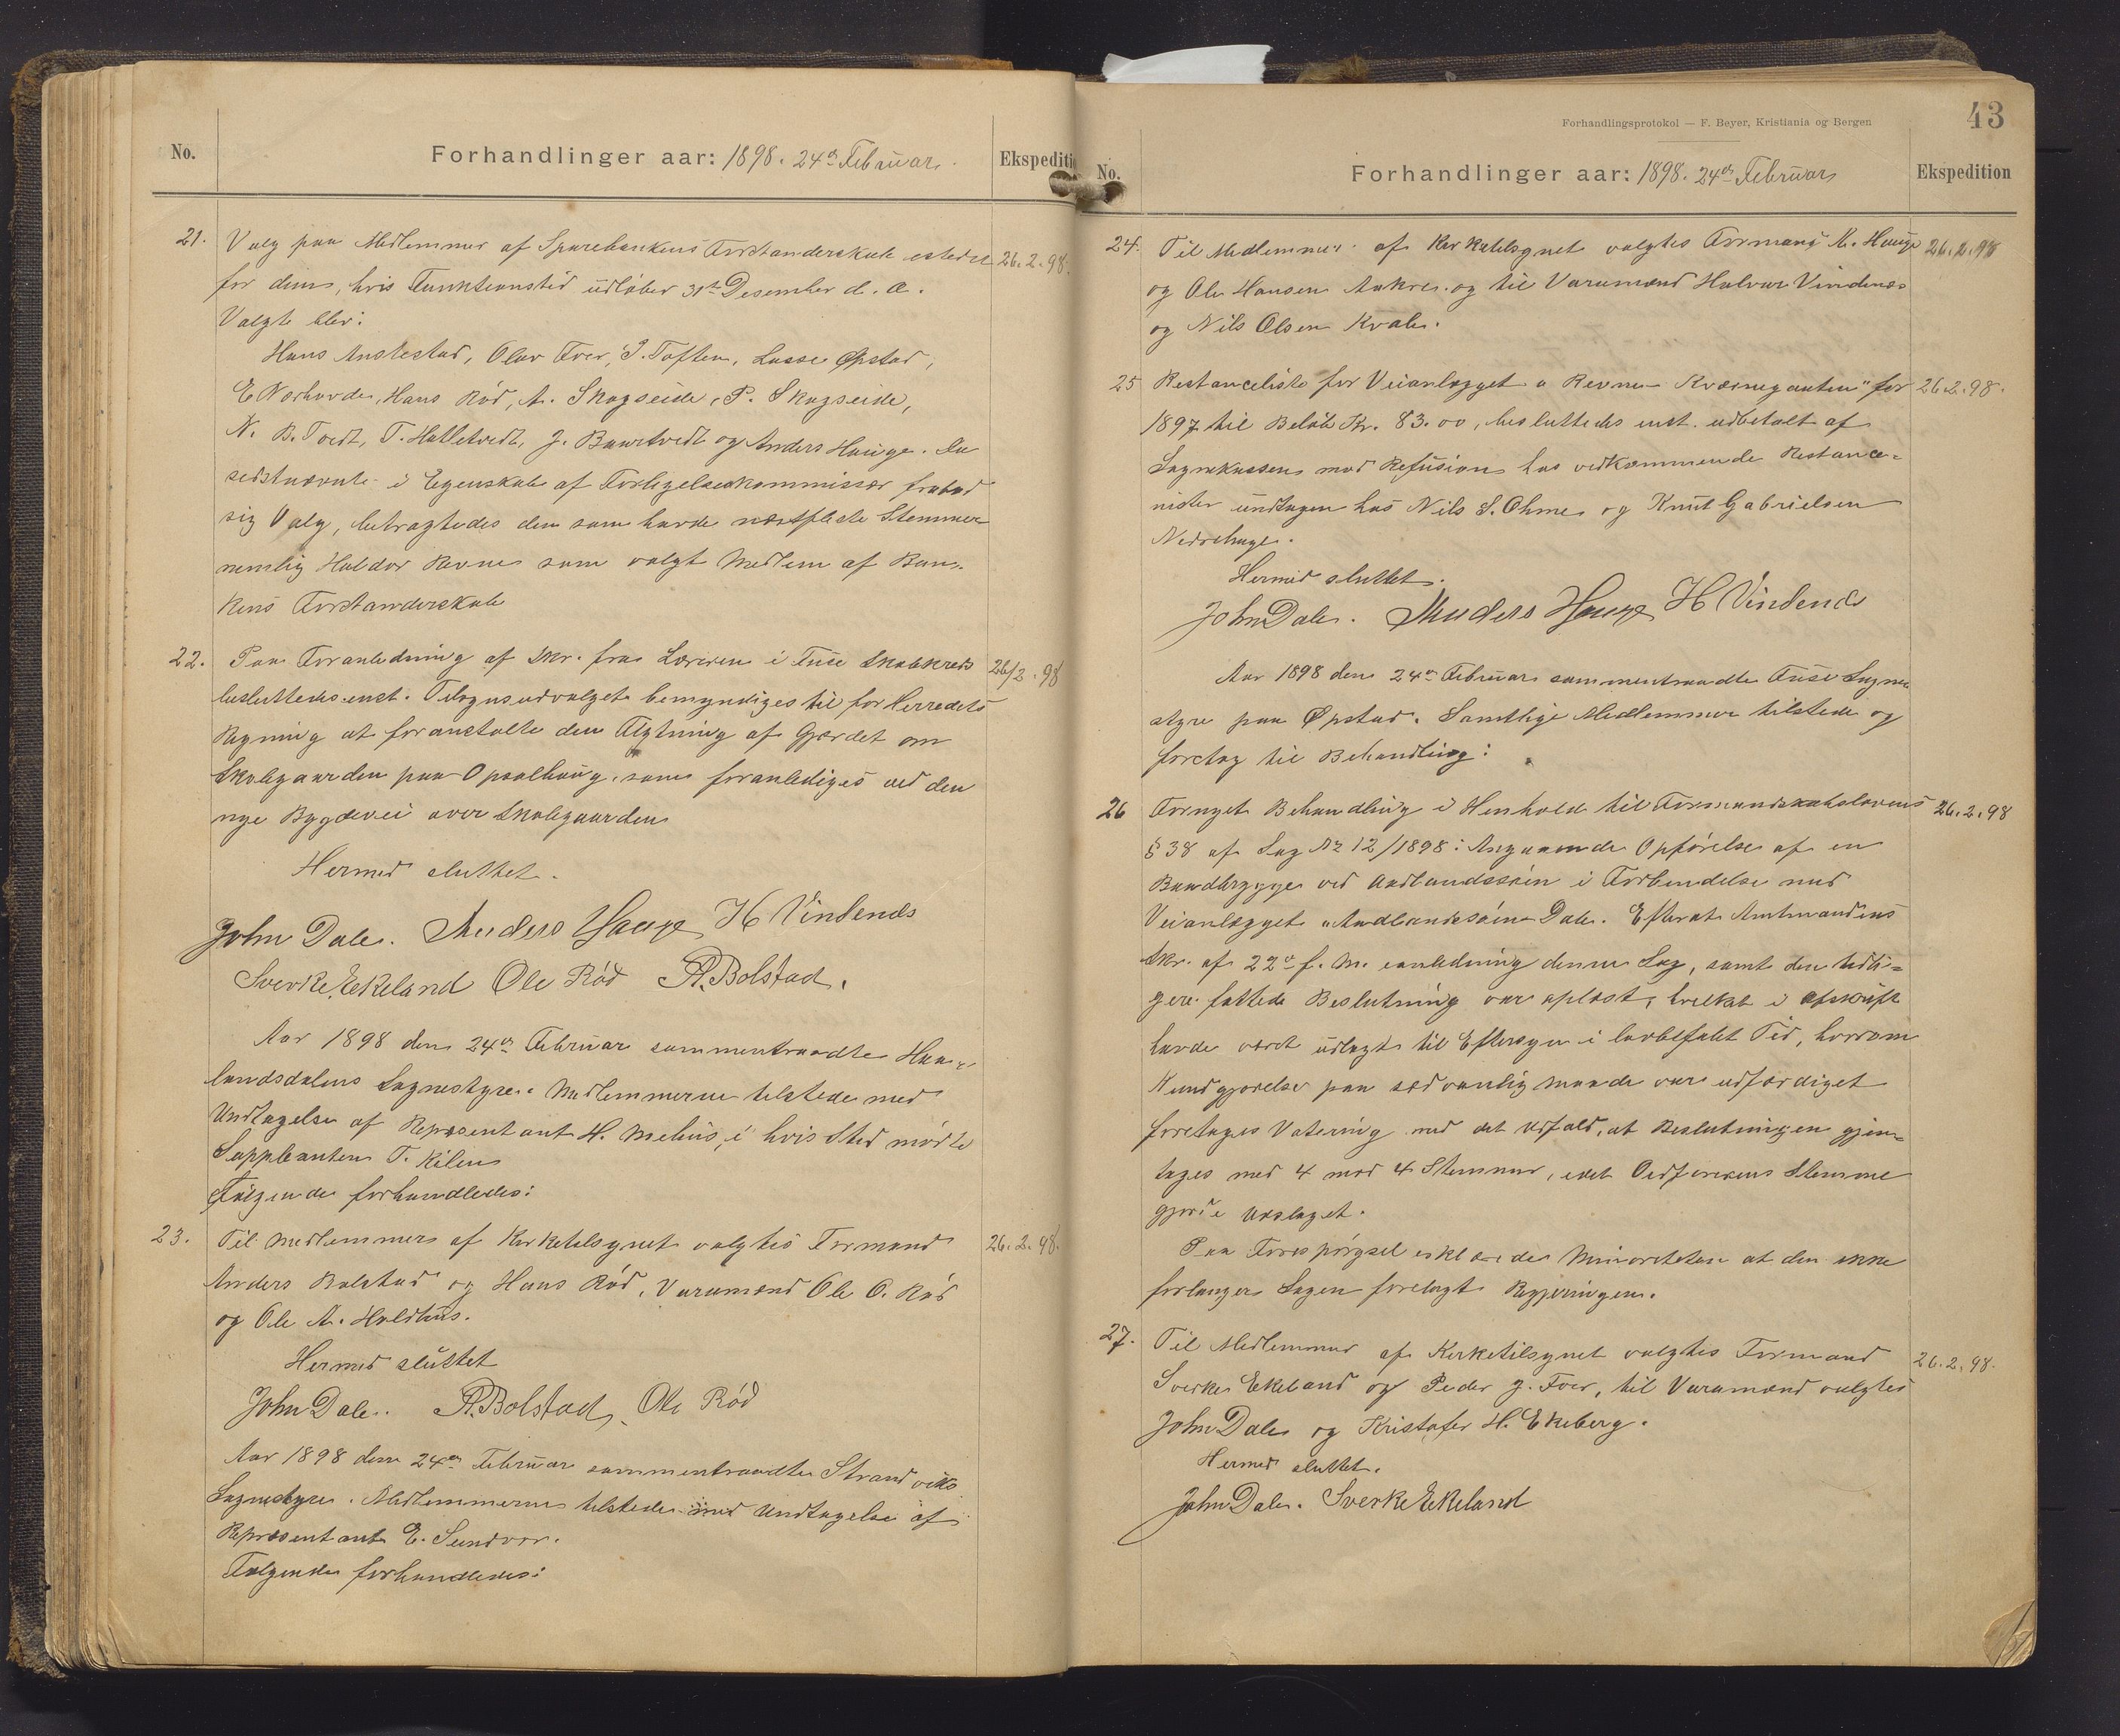 No.
Forhandlinger aar: 1898. 24de Februar.
Ekspediti
21. Valg paa Medlemmer af Sparebankens Forstanderskab istedet 26.2.98.
for dem, hvis Funktionstid udløber 31te Desember d. a.
Valgte blev:
Hans Austestad, Olav Tver, I. Toften, Lasse Øpstad,
E Nørhovde, Hans Rød, A. Skogseide, P. Skogseide,
N. B. Tvedt, T. Hatletvedt, J. Bawtvedt og Anders Hauge. Da
sidstnævnte i Egenskab af Forligelseskommissær frabad
sig Valg, betragtedes den som havde næstfleste Stemmer
nemlig Haldor Revne som valgt Medlem af Ban-
kens Forstanderskab
22. Paa Foranledning af Skr. fra Læreren i Fuse Skolekreds 26/2.98
besluttedes enst. Tilsynsudvalget bemyndiges til for Herredets
Regning at foranstalte den Flytning af Gjerdet om
Skolegaarden paa Opsalhaug, som foranlediges ved den
nye Bygdevei over Skolegaarden
Hermed sluttet.
John Dale. Anders Hauge H Vindenes
Sverke Eekeland Ole Rød A. Bolstad.
Aar 1898 den 24de Februar sammentraadte Haa-
landsdalens Sognestyre. Medlemmerne tilstede med
Undtagelse af Repræsentant H. Mehus, i hvis Sted mødte
Suppleanten T. Kilen
Følgende forhandledes:
23. Til Medlemmer af Kirketilsynet valgtes Formand 26.2.98.
Anders Bolstad og Hans Rød, Varamænd Ole O. Rød
og Ole A. Holdhus.
Hermed sluttet
John Dale. A. Bolstad, Ole Rød
Aar 1898 den 24de Februar sammentraadte Strandviks
Sognestyre. Medlemmerne tilstede med Undtagelse af
Repræsentant E. Sundvor.
Følgende forhandledes:
43
Forhandlingsprotokol — F. Beyer, Kristiania og Bergen
No.
Forhandlinger aar: 1898. 24de Februar
Ekspedition
24. Til Medlemmer af Kirketilsynet valgtes Formand A. Hauge 26.2.98
og Ole Hansen Aakre og til Varamænd Halvor Vindenes
og Nils Olsen Kvale.
25 Restanceliste for Veianlægget "Revne - Kværnegauten" for 26.2.98.
1897 til Beløb Kr. 83.00, besluttedes enst. udbetalt af
Sognekassen mod Refusion hos vedkommende Restance-
nister undtagen hos Nils S. Ohme og Knut Gabrielsen
Nedrehuge.
Hermed sluttet.
John Dale. Anders Hauge H Vindenes
Aar 1898 den 24de Februar sammentraadte Fuse Sogne
styre paa Øpstad. Samtlige Medlemmer tilstede og
foretog til Behandling:
26 Fornyet Behandling i Henhold til Formandskabslovens 26.2.98
§ 38 af Sag No 12/1898: Angaaende Opførelse af en
Baadbrygge ved Aadlandssøen i Forbindelse med
Veianlægget "Aadlandssøen - Dale. Efterat Amtmandens
Skr. af 22de f. M. i anledning denne Sag, samt den tidli-
gere fattede Beslutning var oplæst, hvilket i afskrift
havde været udlagt til Eftersyn i lovbefalet Tid, hvorom
Kundgjørelse paa sædvanlig Maade var udfærdiget
foretoges Votering med det Udfald, at Beslutningen gjen-
toges med 4 mod 4 Stemmer, idet Ordførerens Stemme
gjorde Udslaget.
Paa Forespørgsel erklærede Minoriteten at den ikke
forlanger Sagen forelagt Regjeringen.
27. Til Medlemmer af Kirketilsynet valgtes Formand 26.2.98.
Sverke Ekeland og Peder J. Tver, til Varamænd valgtes
John Dale og Kristofer H. Ekeberg.
Hermed sluttet.
John Dale. Sverke Eekeland